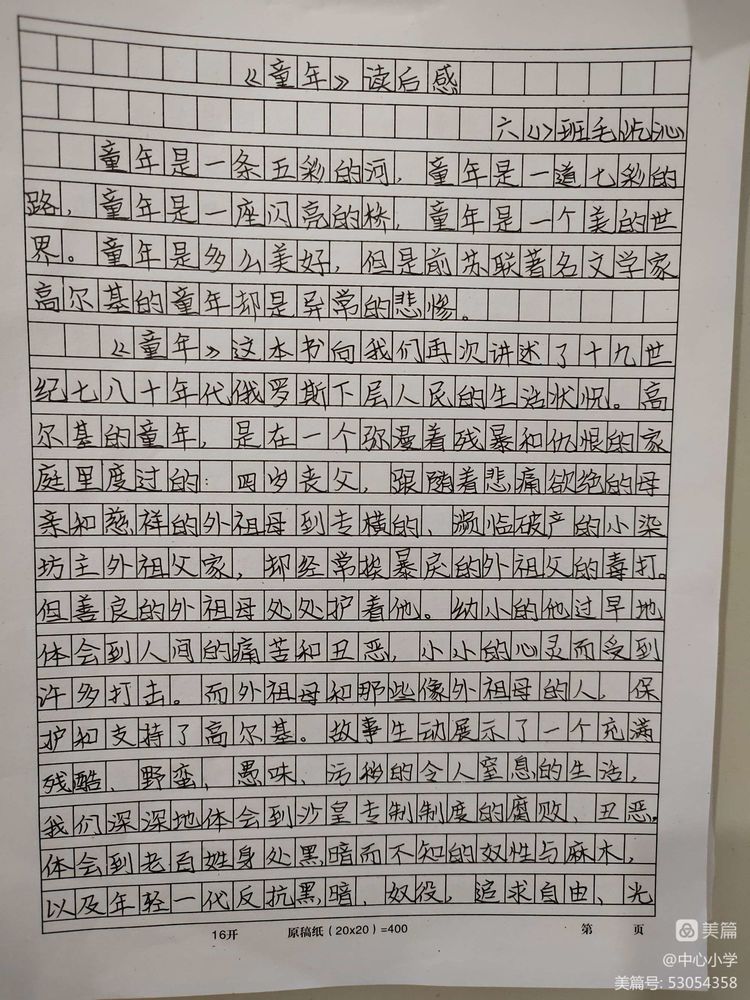 《童年》读后感
六(1)班毛沁
童年是一条五彩的河，童年是一道七彩的
路，童年是一座闪亮的桥，童年是一个美的世
界。童年是多么美好，但是前苏联著名文学家
高尔基的童年却是异常的悲惨。
《童年》这本书向我们再次讲述了十九世
纪七八十年代俄罗斯下层人民的生活状况。高
尔基的童年，是在一个弥漫着残暴和仇恨的家
庭里度过的：四岁丧父，跟随着悲痛欲绝的母
亲和慈祥的外祖母到专横的、濒临破产的小染
坊主外祖父家，却经常挨暴戾的外祖父的毒打。
但善良的外祖母处处护着他。幼小的他过早地
体会到人间的痛苦和丑恶，小小的心灵而受到
许多打击。而外祖母和那些像外祖母的人，保
护和支持了高尔基。故事生动展示了一个充满
残酷、野蛮、愚昧、污秽的令人窒息的生活，
我们深深地体会到沙皇专制制度的腐败、丑恶。
体会到老百姓身处黑暗而不知的奴性与麻木，
以及年轻一代反抗黑暗、奴役，追求自由、光
16开 原稿纸（20x20）=400 第 页
美篇
@中心小学
美篇号: 53054358